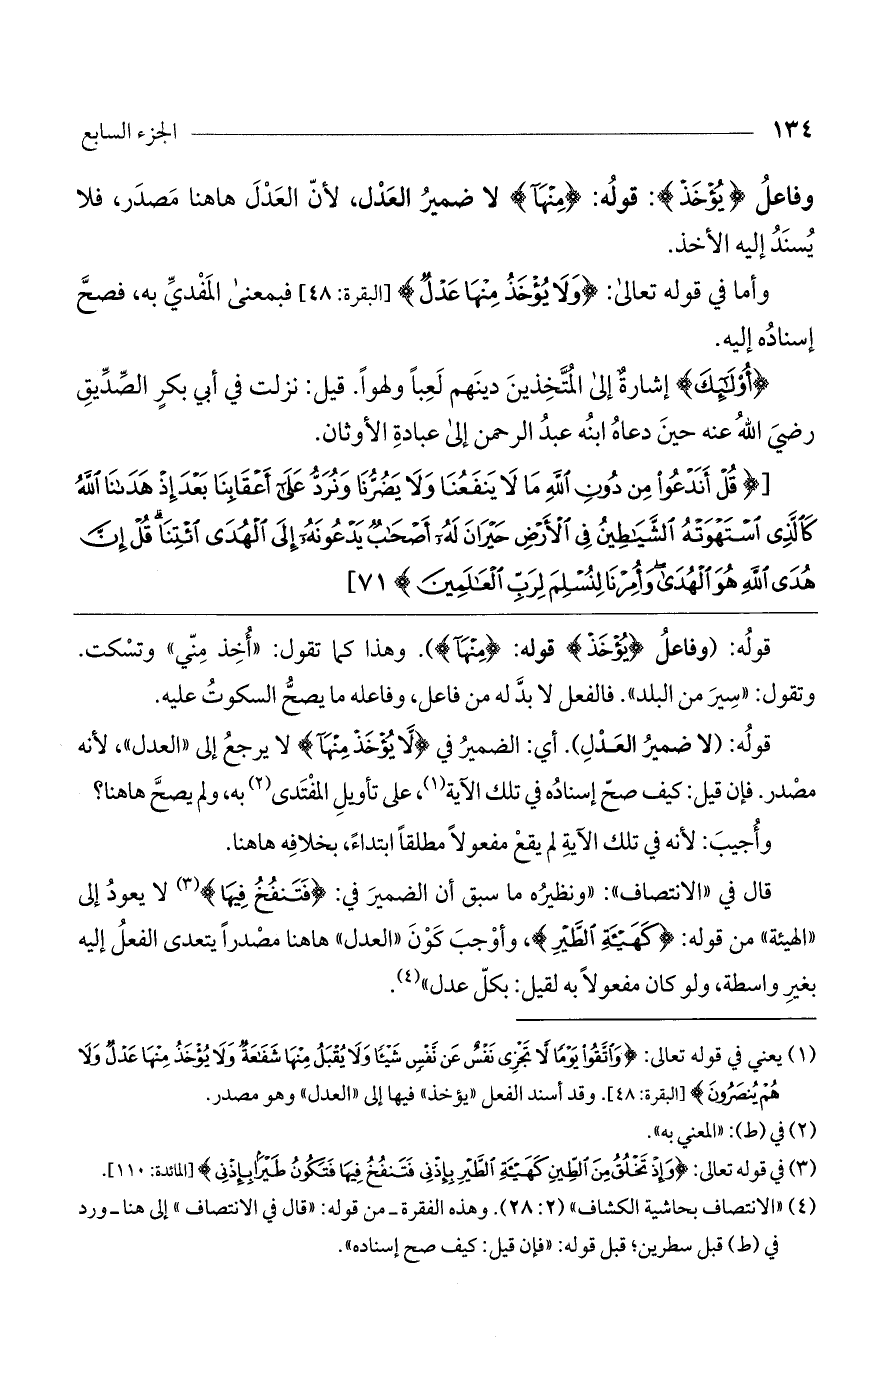 ١٣٤ الجزء السابع
وفاعلُ ﴿يُؤْخَذْ﴾: قولُه: ﴿مِنْهَآ﴾ لا ضميرُ العَدْل، لأنّ العَدْلَ هاهنا مَصدَر، فلا
يُسنَدُ إليه الأخذ.
وأما في قوله تعالىٰ: ﴿وَلَا يُؤْخَذُ مِنْهَا عَدْلٌ﴾ [البقرة: ٤٨] فبمعنىٰ المَفْديِّ به، فصحَّ
إسنادُه إليه.
﴿أُوْلَٰٓئِكَ﴾ إشارةٌ إلىٰ المُتَّخِذينَ دينَهم لَعِباً ولهواً. قيل: نزلت في أبي بكرٍ الصِّدِّيقِ
رضيَ اللهُ عنه حينَ دعاهُ ابنُه عبدُ الرحمن إلىٰ عبادةِ الأوثان.
[﴿قُلْ أَنَدْعُواْ مِن دُونِ ٱللَّهِ مَا لَا يَنفَعُنَا وَلَا يَضُرُّنَا وَنُرَدُّ عَلَىٰٓ أَعْقَابِنَا بَعْدَ إِذْ هَدَىٰنَا ٱللَّهُ
كَٱلَّذِى ٱسْتَهْوَتْهُ ٱلشَّيَٰطِينُ فِى ٱلْأَرْضِ حَيْرَانَ لَهُۥٓ أَصْحَٰبٌ يَدْعُونَهُۥٓ إِلَى ٱلْهُدَى ٱئْتِنَا ۗ قُلْ إِنَّ
هُدَى ٱللَّهِ هُوَ ٱلْهُدَىٰ ۖ وَأُمِرْنَا لِنُسْلِمَ لِرَبِّ ٱلْعَٰلَمِينَ﴾ ٧١]
قولُه: (وفاعلُ ﴿يُؤْخَذْ﴾ قوله: ﴿مِنْهَآ﴾). وهذا كما تقول: «أُخِذ مِنّي» وتسْكت.
وتقول: «سِيرَ من البلد». فالفعل لا بدَّ له من فاعل، وفاعله ما يصحُّ السكوتُ عليه.
قولُه: (لا ضميرُ العَدْلِ). أي: الضميرُ في ﴿لَّا يُؤْخَذْ مِنْهَآ﴾ لا يرجعُ إلى «العدل»، لأنه
مصْدر. فإن قيل: كيف صحّ إسنادُه في تلك الآية(١)، على تأويلِ المفْتَدى(٢) به، ولم يصحَّ هاهنا؟
وأُجيبَ: لأنه في تلك الآيةِ لم يقعْ مفعولاً مطلقاً ابتداءً، بخلافِه هاهنا.
قال في «الانتصاف»: «ونظيرُه ما سبق أن الضميرَ في: ﴿فَتَنفُخُ فِيهَا﴾(٣) لا يعودُ إلى
«الهيئة» من قوله: ﴿كَهَيْـَٔةِ ٱلطَّيْرِ﴾، وأوْجبَ كَوْنَ «العدل» هاهنا مصْدراً يتعدى الفعلُ إليه
بغيرِ واسطة، ولو كان مفعولاً به لقيل: بكلّ عدل»(٤).
(١) يعني في قوله تعالى: ﴿وَٱتَّقُواْ يَوْمًا لَّا تَجْزِى نَفْسٌ عَن نَّفْسٍ شَيْـًٔا وَلَا يُقْبَلُ مِنْهَا شَفَٰعَةٌ وَلَا يُؤْخَذُ مِنْهَا عَدْلٌ وَلَا
هُمْ يُنصَرُونَ﴾ [البقرة: ٤٨]. وقد أسند الفعل «يؤخذ» فيها إلى «العدل» وهو مصدر.
(٢) في (ط): «المعني به».
(٣) في قوله تعالى: ﴿وَإِذْ تَخْلُقُ مِنَ ٱلطِّينِ كَهَيْـَٔةِ ٱلطَّيْرِ بِإِذْنِى فَتَنفُخُ فِيهَا فَتَكُونُ طَيْرًۢا بِإِذْنِى﴾ [المائدة: ١١٠].
(٤) «الانتصاف بحاشية الكشاف» (٢: ٢٨). وهذه الفقرة ـ من قوله: «قال في الانتصاف» إلى هنا ـ ورد
في (ط) قبل سطرين؛ قبل قوله: «فإن قيل: كيف صح إسناده».